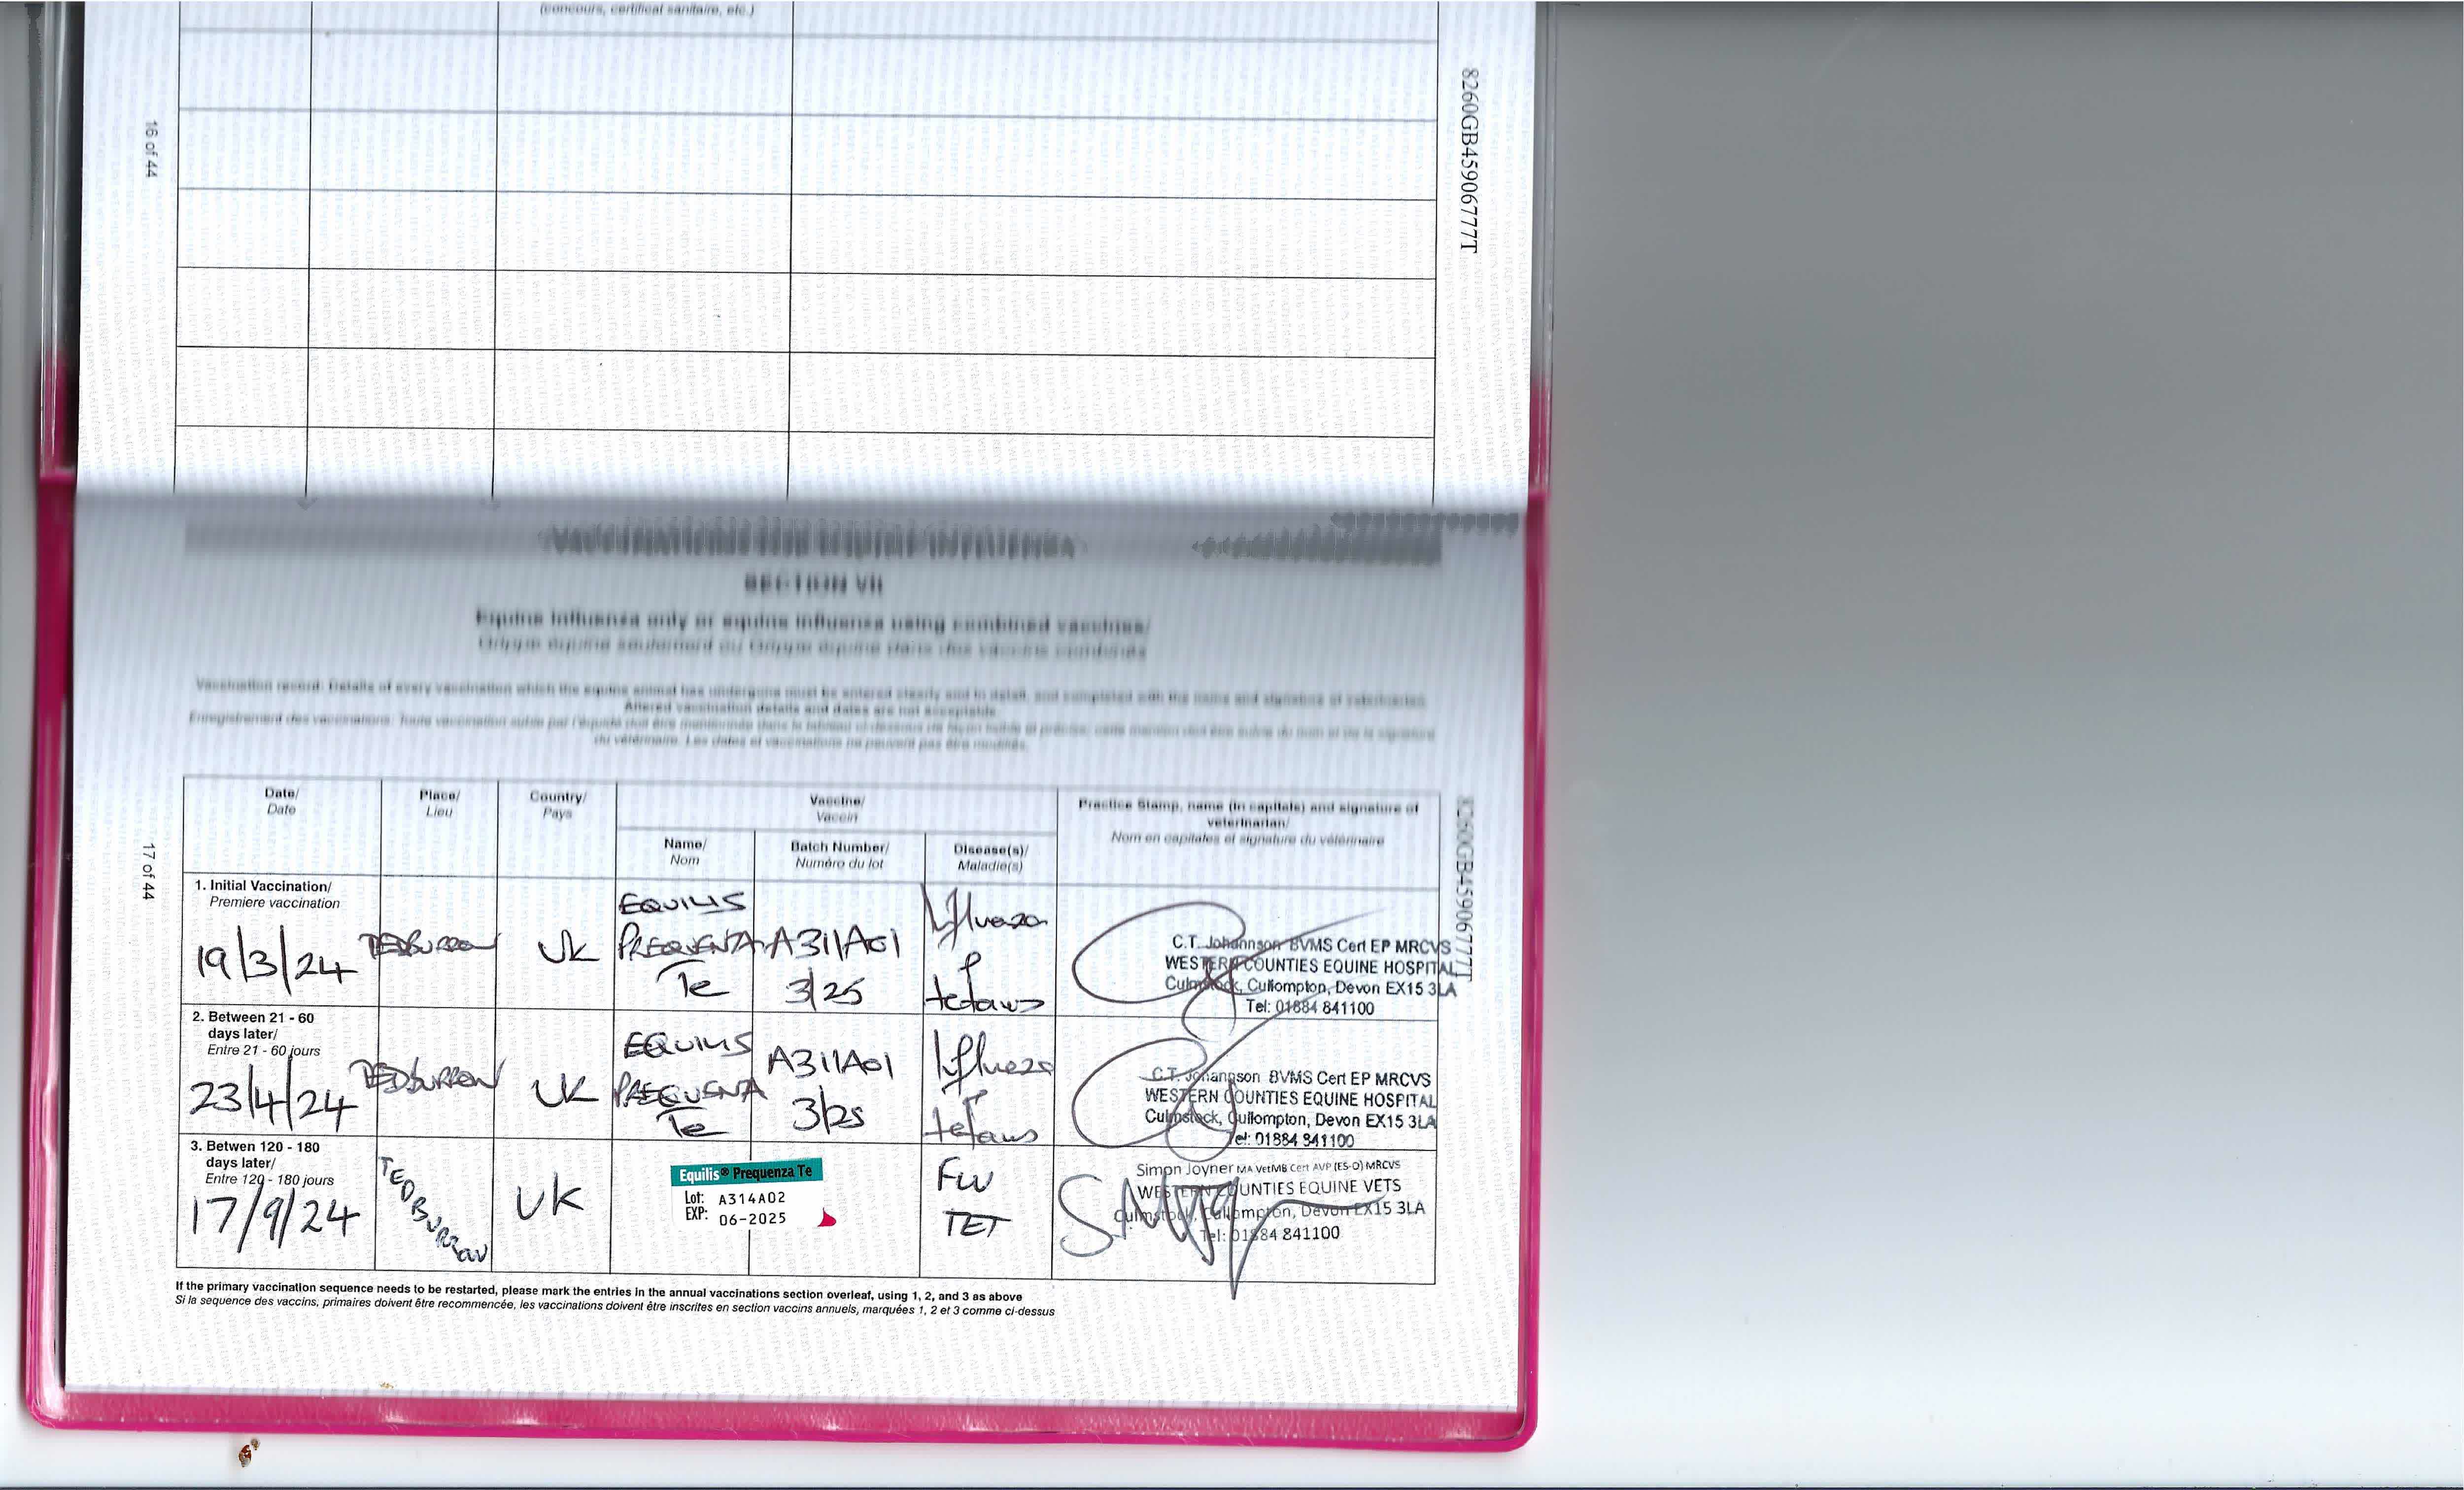 (concours, certificat sanitaire, etc.)
8260GB45906777T
16 of 44
VACCINATIONS FOR EQUINE INFLUENZA
SECTION VII
Equine influenza only or equine influenza using combined vaccines/
Grippe équine seulement ou Grippe équine dans des vaccins combinés
Vaccination record: Details of every vaccination which the equine animal has undergone must be entered clearly and in detail, and completed with the name and signature of veterinarian.
Altered vaccination details and dates are not acceptable.
Enregistrement des vaccinations: Toute vaccination subie par l'équidé doit être mentionnée dans le tableau ci-dessous de façon lisible et précise; cette mention doit être suivie du nom et de la signature
du vétérinaire. Les dates et vaccinations ne peuvent pas être modifiés.
8260GB45906777T
17 of 44
Date/
Date
Place/
Lieu
Country/
Pays
Vaccine/
Vaccin
Practice Stamp, name (in capitals) and signature of
veterinarian/
Nom en capitales et signature du vétérinaire
Name/
Nom
Batch Number/
Numéro du lot
Disease(s)/
Maladie(s)
1. Initial Vaccination/
Premiere vaccination
19/3/24
TEDBURROW
UK
EQUILIS
PREQUENZA
Te
A311A01
3/25
Influenza
&
tetanus
C.T. Johannson BVMS Cert EP MRCVS
WESTERN COUNTIES EQUINE HOSPITAL
Culmstock, Cullompton, Devon EX15 3LA
Tel: 01884 841100
2. Between 21 - 60
days later/
Entre 21 - 60 jours
23/4/24
TEDBURROW
UK
EQUILIS
PREQUENZA
Te
A311A01
3/25
Influenza
&
tetanus
C.T. Johannson BVMS Cert EP MRCVS
WESTERN COUNTIES EQUINE HOSPITAL
Culmstock, Cullompton, Devon EX15 3LA
Tel: 01884 841100
3. Betwen 120 - 180
days later/
Entre 120 - 180 jours
17/9/24
TEDBURROW
UK
Equilis® Prequenza Te
Lot: A314A02
EXP: 06-2025
FLU
TET
Simon Joyner MA VetMB Cert AVP (ES-O) MRCVS
WESTERN COUNTIES EQUINE VETS
Culmstock, Cullompton, Devon EX15 3LA
Tel: 01884 841100
If the primary vaccination sequence needs to be restarted, please mark the entries in the annual vaccinations section overleaf, using 1, 2, and 3 as above
Si la sequence des vaccins, primaires doivent être recommencée, les vaccinations doivent être inscrites en section vaccins annuels, marquées 1, 2 et 3 comme ci-dessus